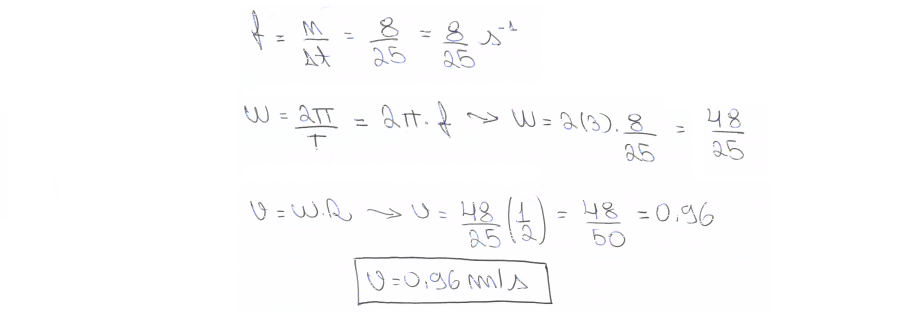 f = m/Δt = 8/25 = 8/25 s⁻¹
W = 2π/T = 2π. f ⤳ W = 2(3). 8/25 = 48/25
v = W.R ⤳ v = 48/25 (1/2) = 48/50 = 0,96
v = 0,96 m/s